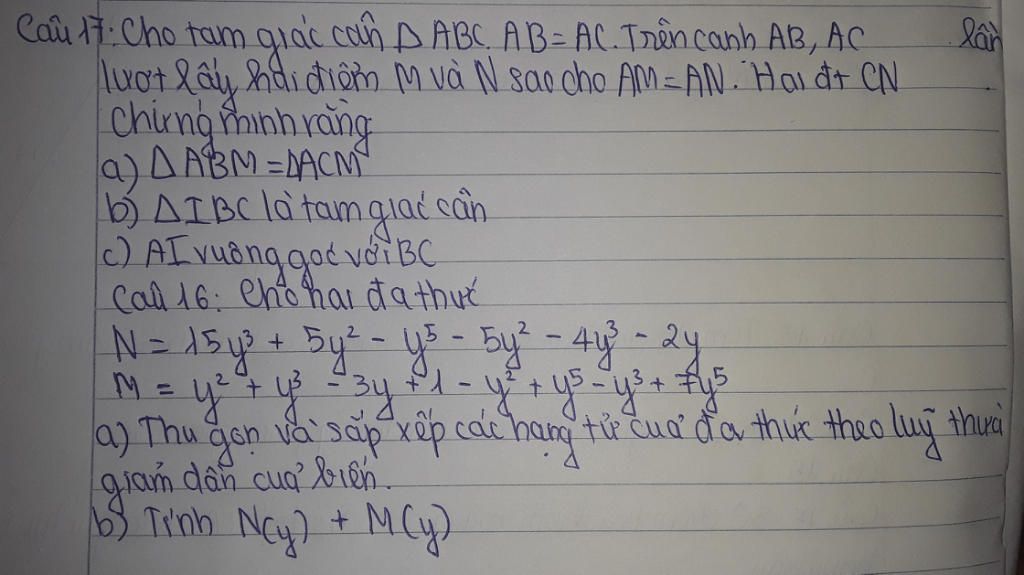 Câu 17: Cho tam giác cân Δ ABC. AB = AC. Trên cạnh AB, AC lần
lượt lấy hai điểm M và N sao cho AM = AN. Hai đt CN
Chứng minh rằng
a) Δ ABM = ΔACM
b) Δ IBC là tam giác cân
c) AI vuông góc với BC
Câu 16: Cho hai đa thức
N = 15y³ + 5y² - y⁵ - 5y² - 4y³ - 2y
M = y² + y³ - 3y + 1 - y² + y⁵ - y³ + 7y⁵
a) Thu gọn và sắp xếp các hạng tử của đa thức theo luỹ thừa
giảm dần của biến.
b) Tính N(y) + M(y)